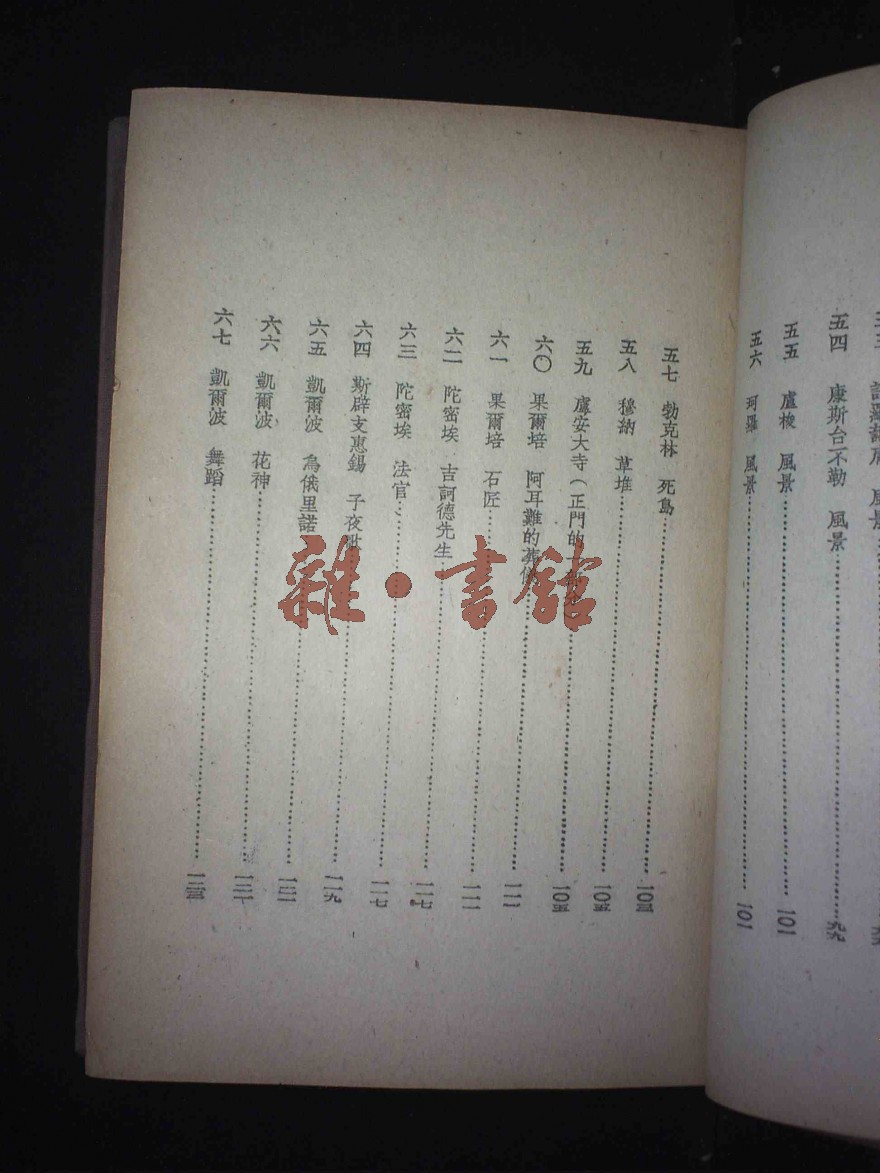 五四 康斯台不勒 風景……九九
五五 盧梭 風景……一〇一
五六 珂羅 風景……一〇一
五七 勃克林 死島……一〇三
五八 穆納 草堆……一〇五
五九 盧安大寺（正門的一部……一〇五
六〇 果爾培 阿耳難的葬……一一一
六一 果爾培 石匠……一一一
六二 陀密埃 吉訶德先生……一一七
六三 陀密埃 法官……一一七
六四 斯辟支惠錫 子夜……一一九
六五 凱爾波 烏俄里諾……一二一
六六 凱爾波 花神……一二一
六七 凱爾波 舞蹈……一二三
雜·書館